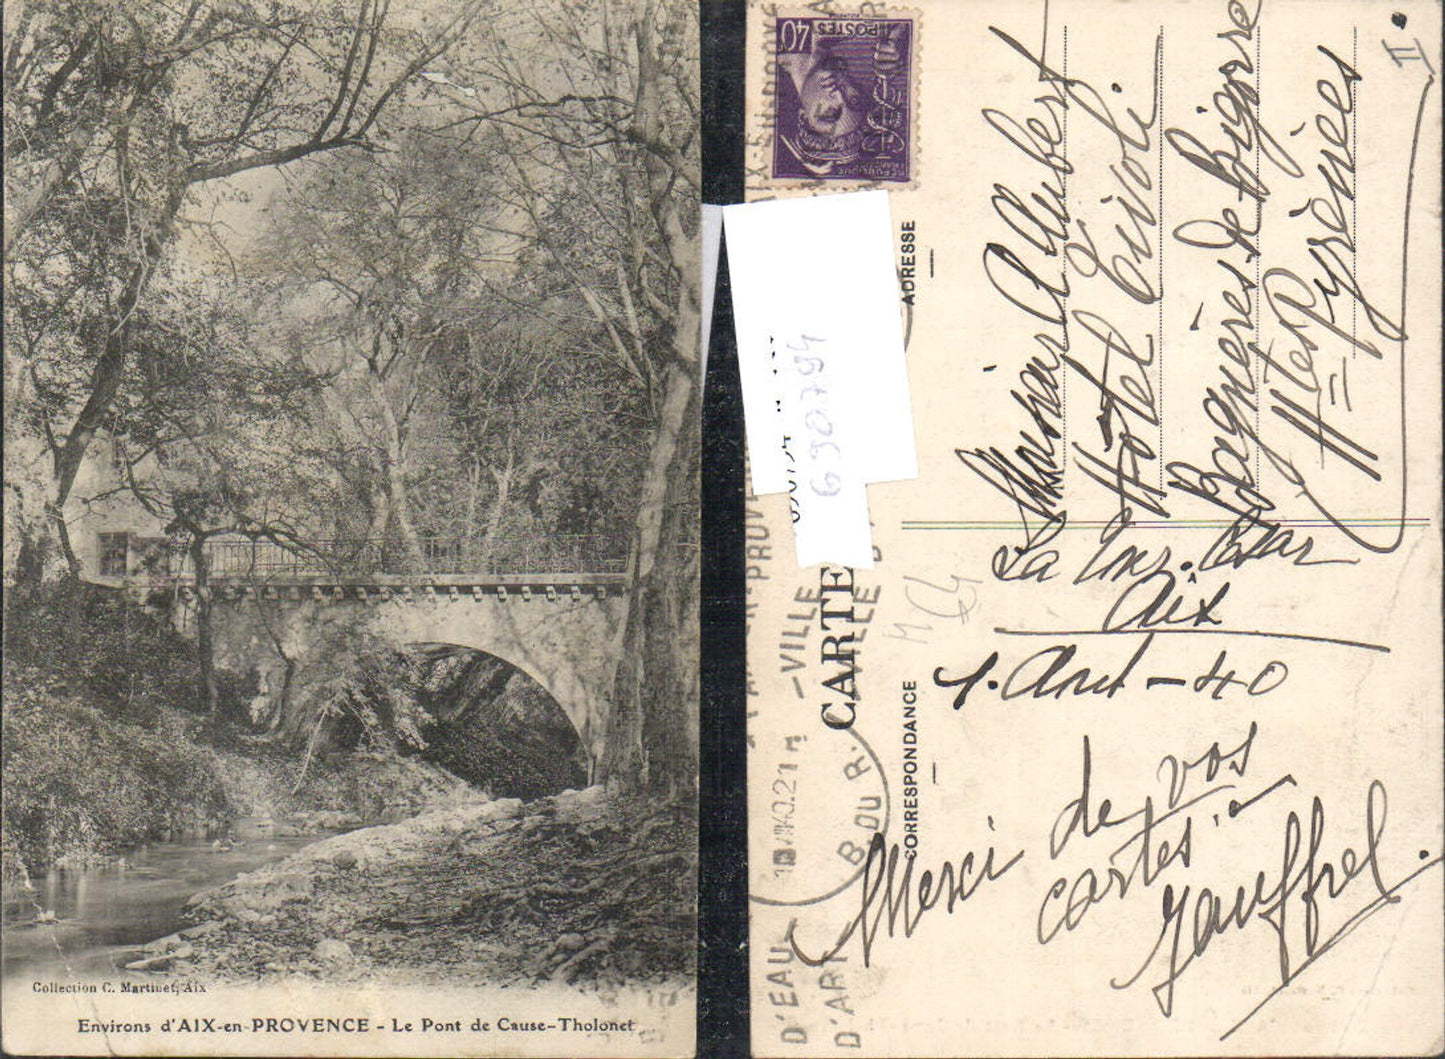 Collection C. Martinet, Aix
Environs d'AIX-en-PROVENCE - Le Pont de Cause-Tholonet
40c
POSTES
RÉPUBLIQUE
FRANÇAISE
690794
CARTE
ADRESSE
CORRESPONDANCE
-VILLE
VILLE
D'EAU
D'ART
B. DU R.
II
Monsieur Aubert
Hotel Tivoli
Bagnères de Bigorre
Htes Pyrénées
La
Aix
1. Août - 40
Merci de vos
cartes
Jauffret